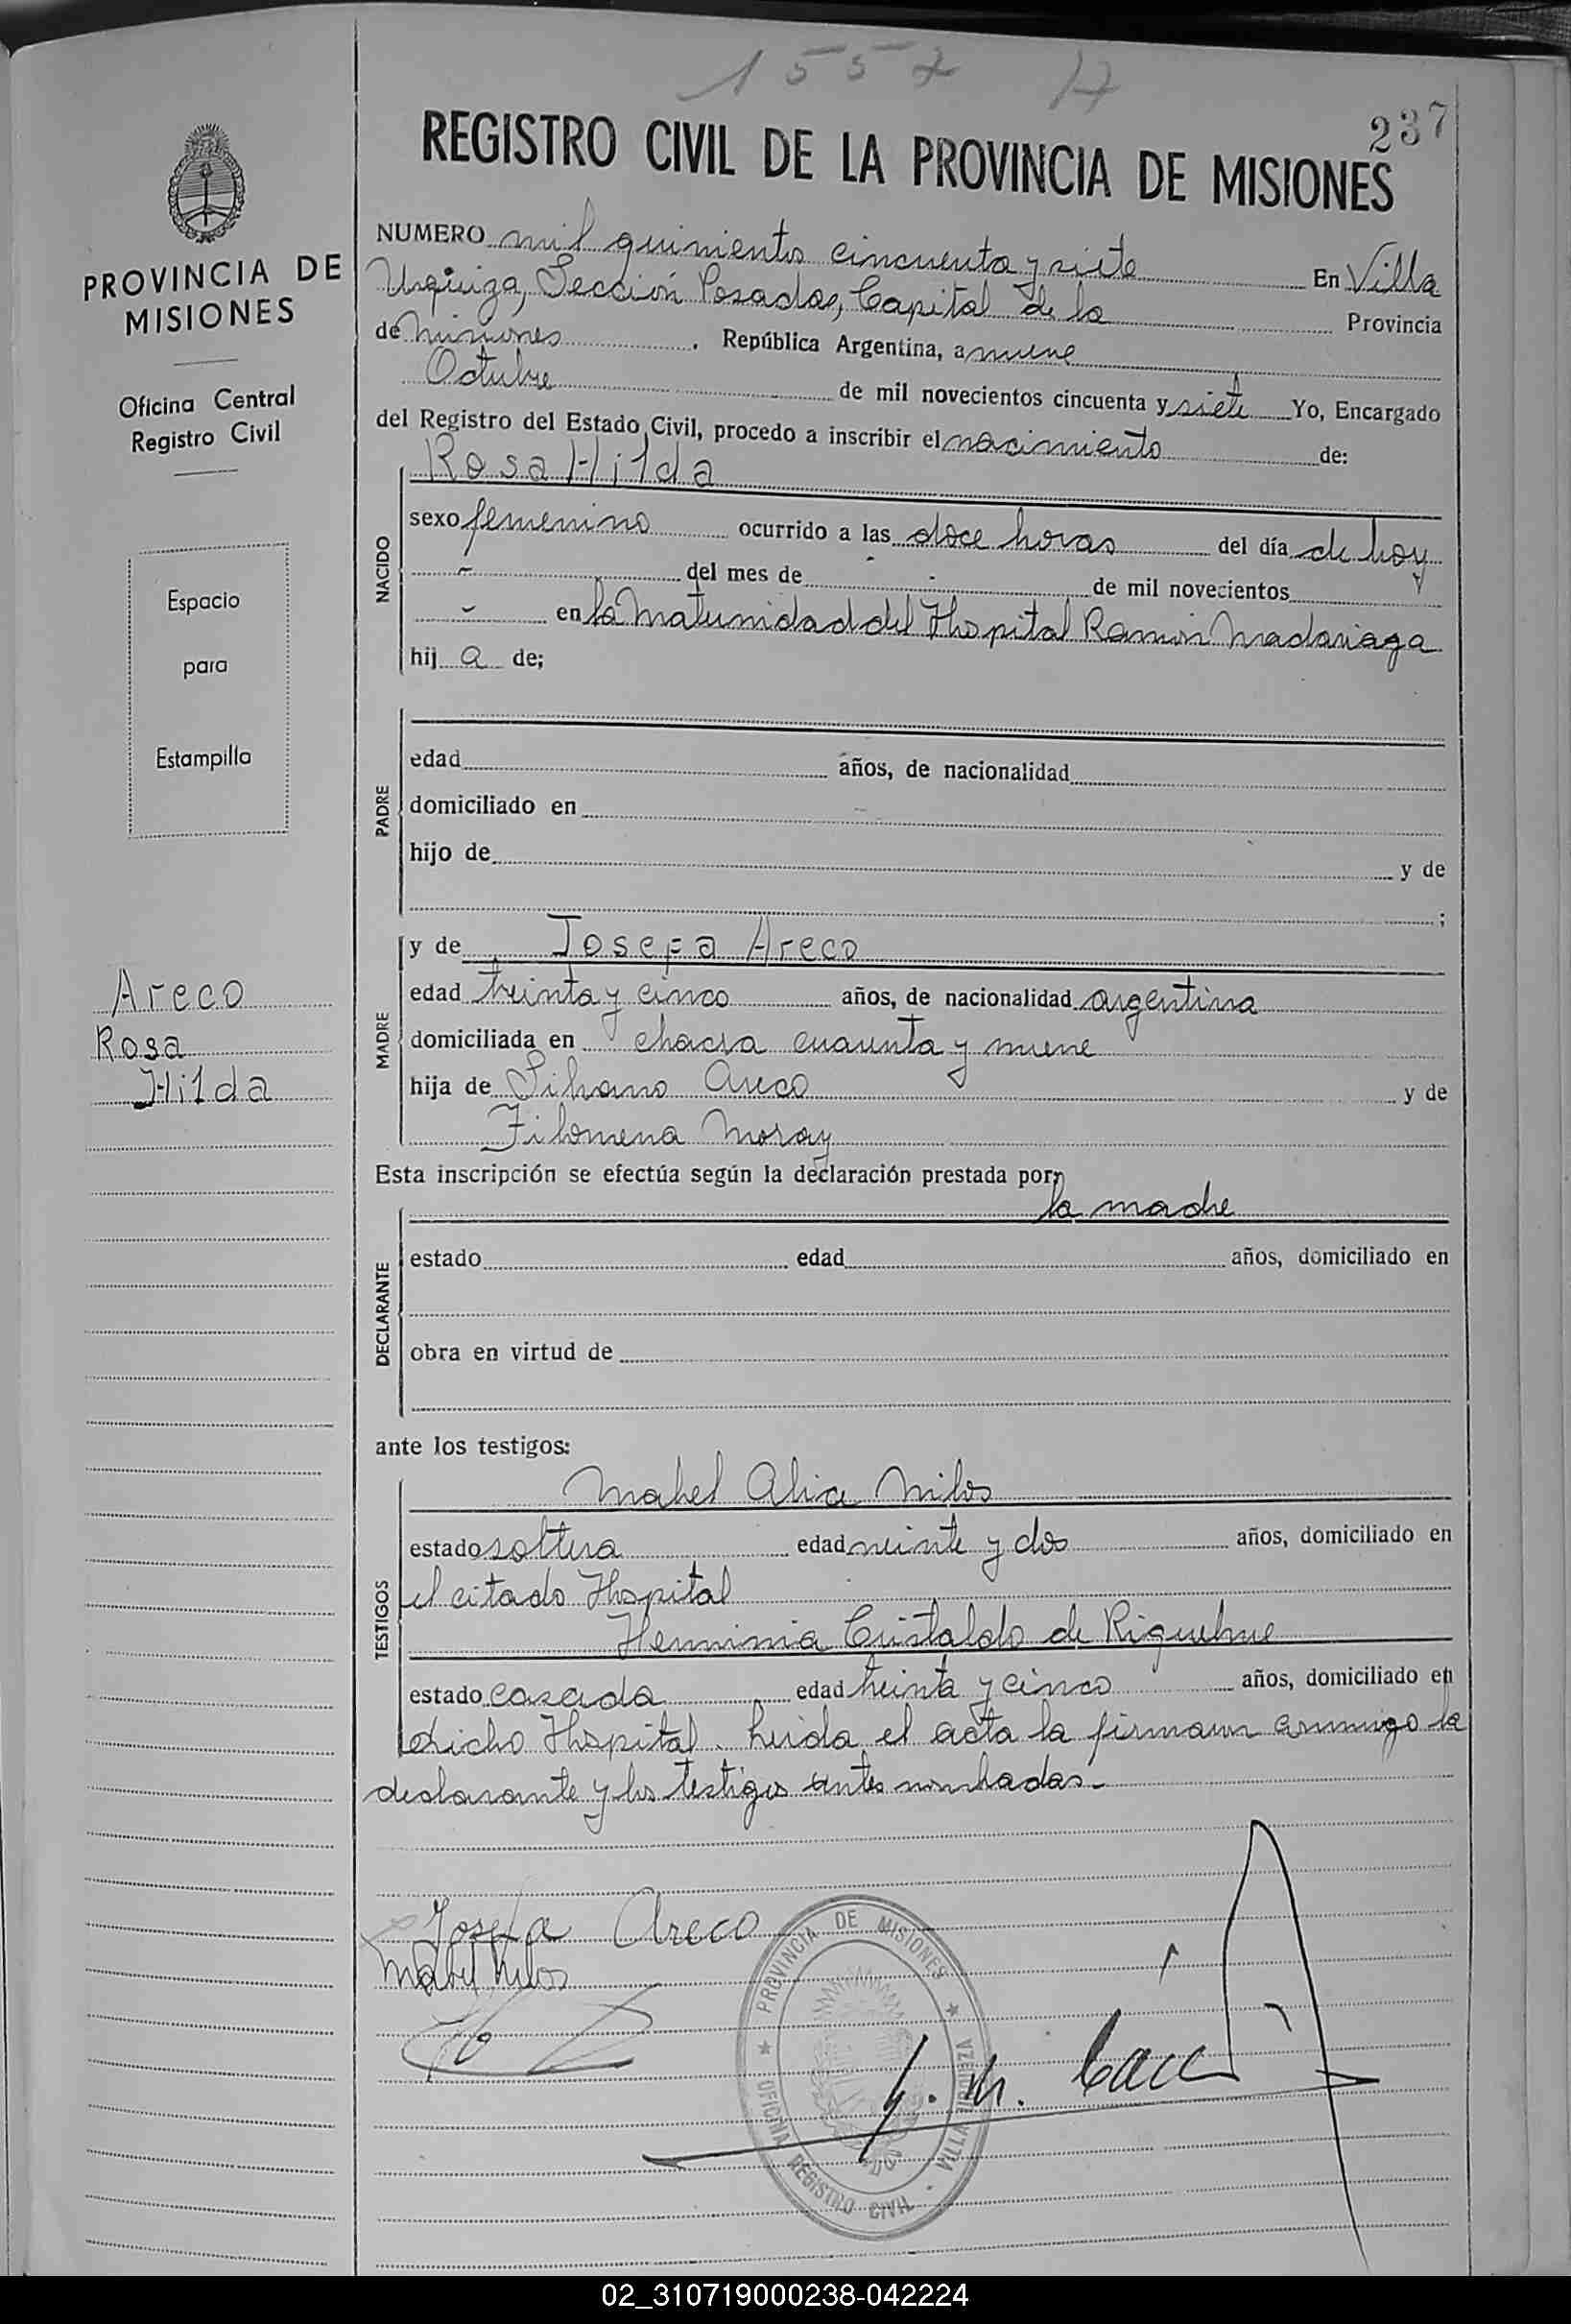 1557 17
237
REGISTRO CIVIL DE LA PROVINCIA DE MISIONES
PROVINCIA DE
MISIONES
Oficina Central
Registro Civil
Espacio
para
Estampilla
Areco
Rosa
Hilda
NUMERO mil quinientos cincuenta y siete En Villa
Urquiza, Sección Posadas, Capital de la Provincia
de Misiones . República Argentina, a nueve
Octubre de mil novecientos cincuenta y siete Yo, Encargado
del Registro del Estado Civil, procedo a inscribir el nacimiento de:
Rosa Hilda
NACIDO
sexo femenino ocurrido a las doce horas del día de hoy
- del mes de - de mil novecientos
- en la Maternidad del Hospital Ramón Madariaga
hij a de;
PADRE
edad años, de nacionalidad
domiciliado en
hijo de y de
;
MADRE
y de Josefa Areco
edad treinta y cinco años, de nacionalidad argentina
domiciliada en chacra cuarenta y nueve
hija de Silvano Areco y de
Filomena Moray
Esta inscripción se efectúa según la declaración prestada por;
la madre
DECLARANTE
estado edad años, domiciliado en
obra en virtud de
ante los testigos:
TESTIGOS
Mabel Alicia Milos
estado soltera edad veinte y dos años, domiciliado en
el citado Hospital
Herminia Cristaldo de Riquelme
estado casada edad treinta y cinco años, domiciliado en
dicho Hospital. Leida el acta la firmaron conmigo la
declarante y los testigos antes nombradas.-
Josefa Areco
Mabel Milos
PROVINCIA DE MISIONES
OFICINA REGISTRO CIVIL - VILLA URQUIZA
02_310719000238-042224